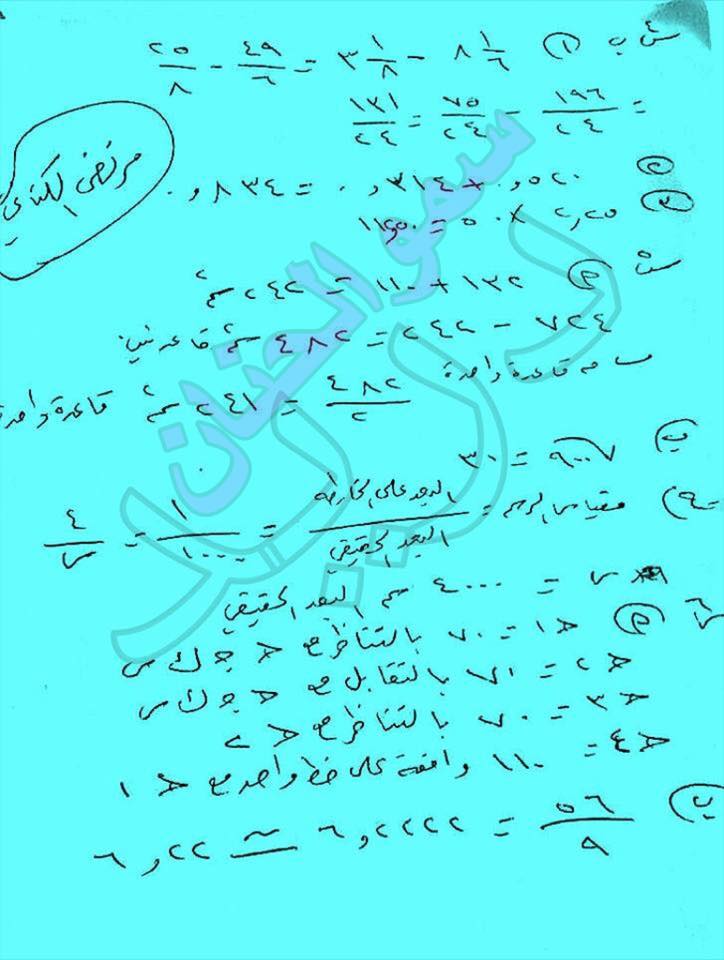 ب ١) ٨ ١/٦ - ٣ ١/٨ = ٤٩/٦ - ٢٥/٨
= ١٩٦/٢٤ - ٧٥/٢٤ = ١٢١/٢٤
مرتضى الكناني
٢) ٠,٥٢٠ + ٠,٣١٤ = ٠,٨٣٤
٣) ٢,٢٥ × ٥٠ =
١٣٢ + ١١٠ = ٢٤٢ سم٢
٧٢٤ - ٢٤٢ = ٤٨٢ سم٢ قاعدتين
مساحة قاعدة واحدة ٤٨٢/٢ = ٢٤١ سم٢ قاعدة واحدة
ب) √٩٠٠ = ٣٠
مقياس الرسم = البعد على الخارطة/البعد الحقيقي = ١/١٠٠٠ = ٤/س
س = ٤٠٠٠ سم البعد الحقيقي
> ١ = ٧٠ بالتناظر مع > جـ ك س
> ٢ = ٧٠ بالتقابل مع > جـ ك س
> ٣ = ٧٠ بالتناظر مع > ٢
> ٤ = ١١٠ واقعة على خط واحد مع > ١
ب) ٥٦/٩ = ٦,٢٢٢٢ ≃ ٦,٢٢
سمو الحنان